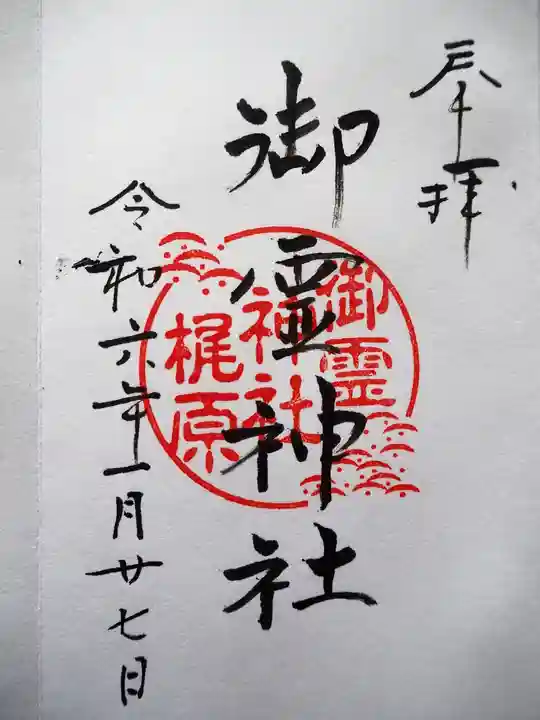 奉拝
御霊神社
御霊
神社
梶原
令和六年一月廿七日